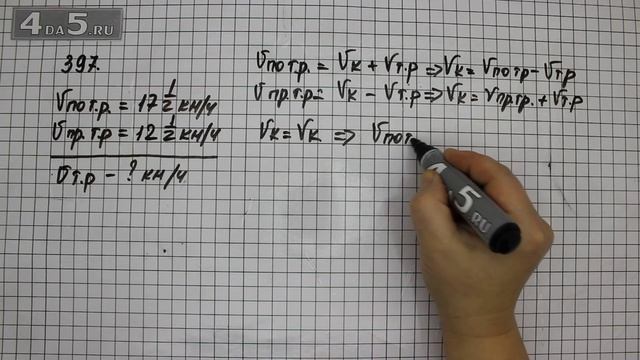 4DA5.RU
397.
Vпо т.р. = 17 1/2 км/ч
Vпр.т.р = 12 1/2 км/ч
Vт.р – ? км/ч
Vпо т.р. = Vк + Vт.р ⇒ Vк = Vпо т.р – Vт.р
Vпр.т.р = Vк – Vт.р ⇒ Vк = Vпр.т.р. + Vт.р
Vк = Vк ⇒ Vпо т.
4DA5.RU